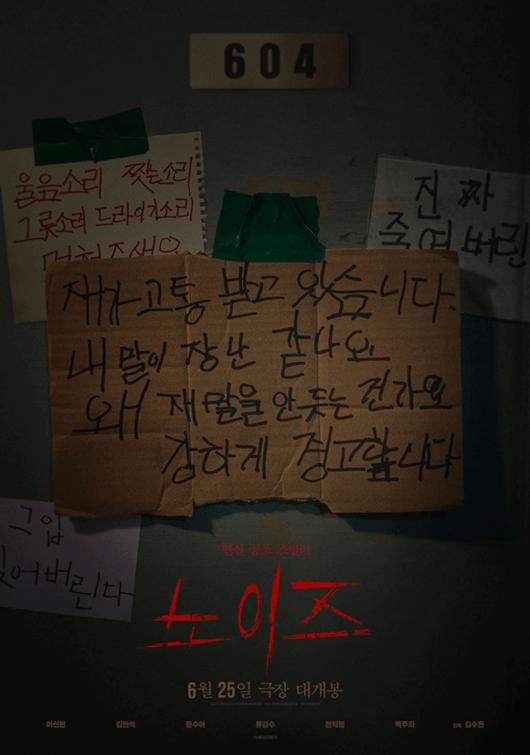 604
울음소리 짖는소리
그릇소리 드라이기소리
멈춰주세요
진짜
죽여버린
재가 고통 받고 있습니다.
내 말이 장난 같나요
왜 재 말을 안 듣는 건가요
강하게 경고합니다
그입
찢어버린다
현실 공포 스릴러
노이즈
6월 25일 극장 대개봉
이선빈 김민석 한수아 류경수 전익령 백주희 감독 김수진